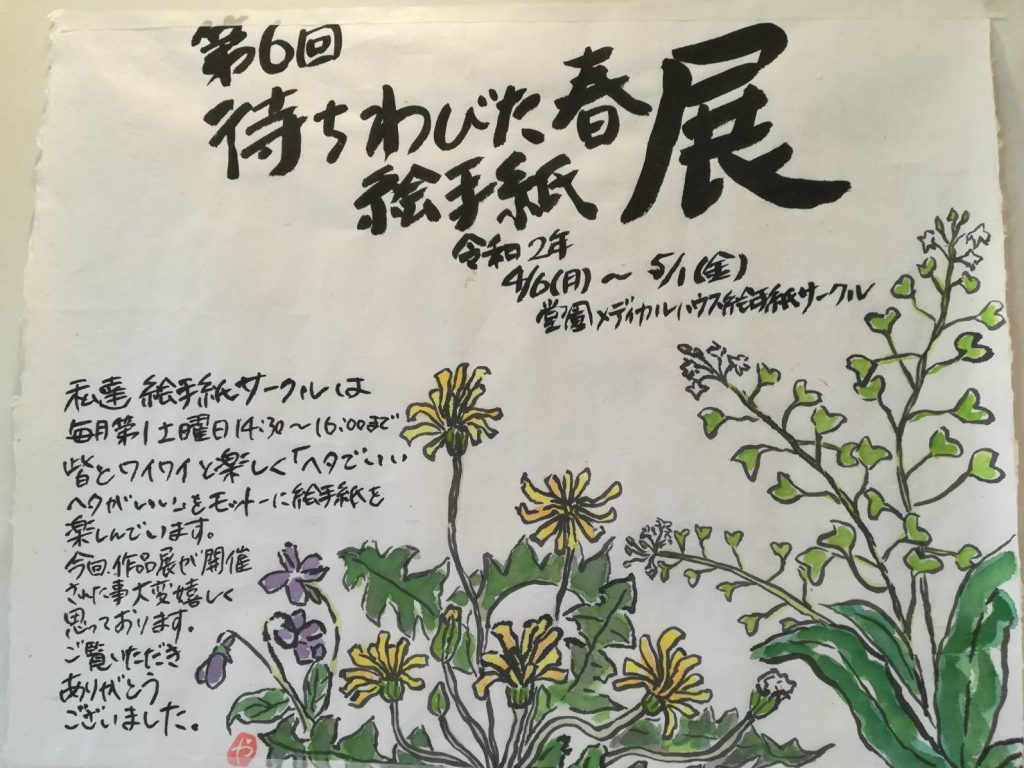 第6回
待ちわびた春
絵手紙
展
令和2年
4/6(月)～5/1(金)
メディカルハウス絵手紙サークル
私達絵手紙サークルは
毎月第1土曜日14:30～16:00まで
皆とワイワイと楽しく「ヘタでいい
ヘタがいい」をモットーに絵手紙を
楽しんでいます。
今回、作品展が開催
された事大変嬉しく
思っております。
ご覧いただき
ありがとう
ございました。